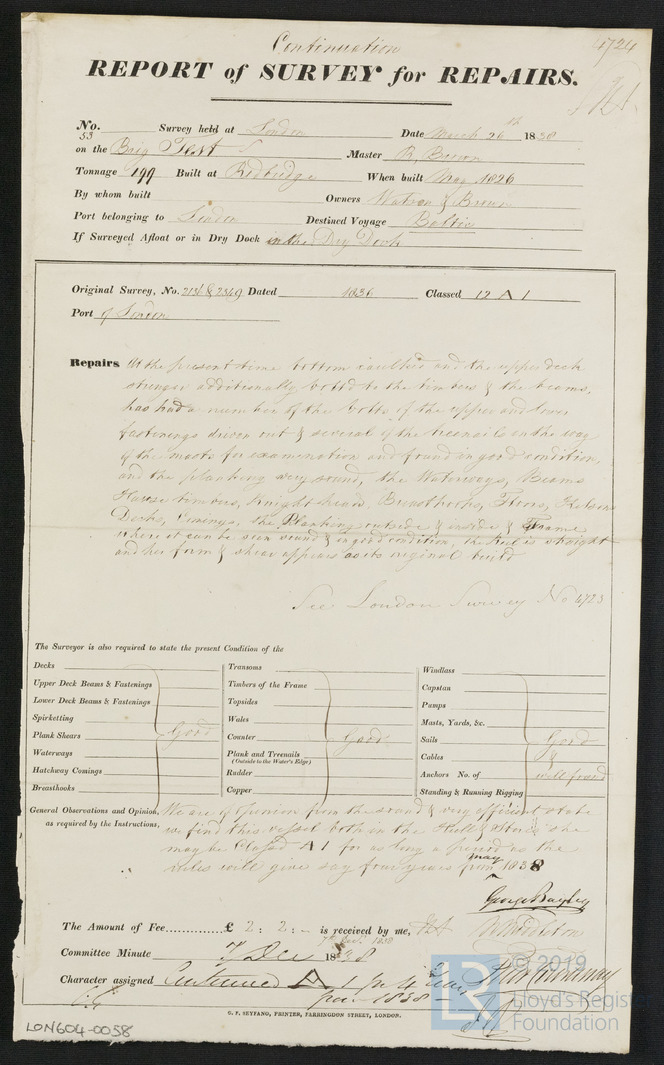 Continuation
4724
REPORT of SURVEY for REPAIRS.
No. 53 Survey held at London Date March 26th 1838
on the Brig Test Master R Brown
Tonnage 199 Built at Redbridge When built May 1826
By whom built Owners Watson & Brown
Port belonging to London Destined Voyage Baltic
If Surveyed Afloat or in Dry Dock in the Dry Dock
Original Survey, No. 2136 & 2349 Dated 1836 Classed 12 A 1
Port of London
Repairs. At the present time bottom caulked and the upper deck
stringer additionally bolted to the timbers & the beams,
has had a number of the bolts of the upper and lower
fastenings driven out & several of the treenails in the way
of the masts for examination and found in good condition,
and the planking very sound, the Waterways, Beams
Hawse timbers, Knight heads, Breasthooks, Floors, Kelsons
Decks, Comings, the Planking outside & inside & Frame
where it can be seen sound & in good condition, the Keel is straight
and her form & shear appears as its original build
See London Survey No 4723
The Surveyor is also required to state the present Condition of the
Decks
Upper Deck Beams & Fastenings
Lower Deck Beams & Fastenings
Spirketting
Plank Shears
Waterways
Hatchway Comings
Breasthooks
Good
Transoms
Timbers of the Frame
Topsides
Wales
Counter
Plank and Treenails
(Outside to the Water's Edge)
Rudder
Copper
Good
Windlass
Capstan
Pumps
Masts, Yards, &c.
Sails
Cables
Anchors No. of
Standing & Running Rigging
Good
&
well found
General Observations and Opinion, We are of Opinion from the sound & very efficient state
as required by the Instructions. we find this vessel both in the Hull & Stores she
may be Classed A 1 for as long a period as the
rules will give say four years from may 1838
George Bayley
The Amount of Fee £ 2: 2: - is received by me,
Committee Minute 7 Dec 1838
7th Dec. 1838
Character assigned Continued A 1 for 4 Years
from 1838
© 2019
Lloyd's Register
Foundation
LR
G. F. SEYFANG, PRINTER, FARRINGDON STREET, LONDON.
LON604-0058